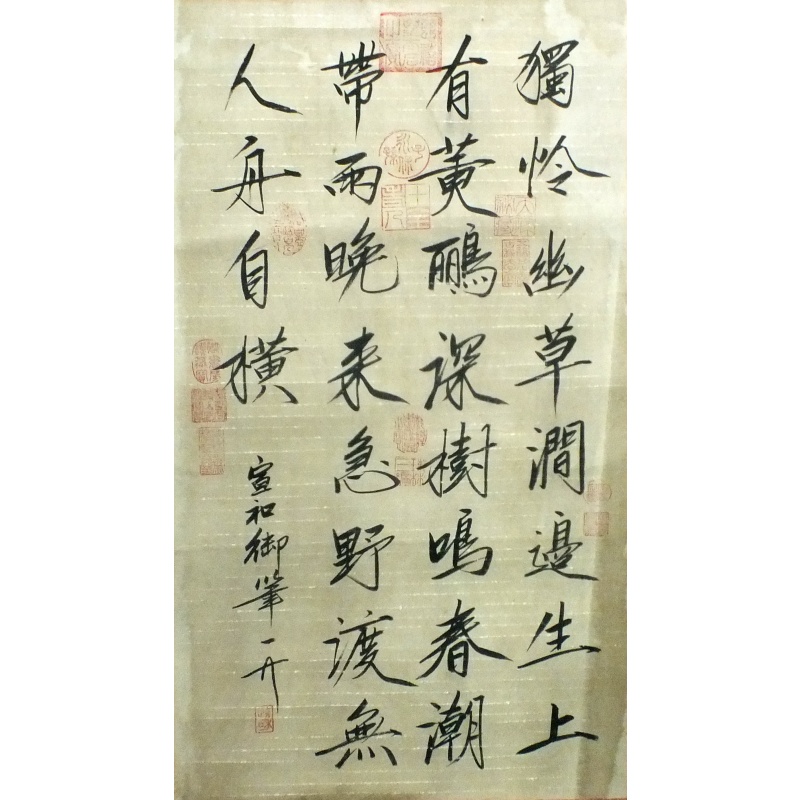 獨怜幽草澗邊生上
有黄鸝深樹鳴春潮
帶雨晚来急野渡無
人舟自橫
宣和御筆